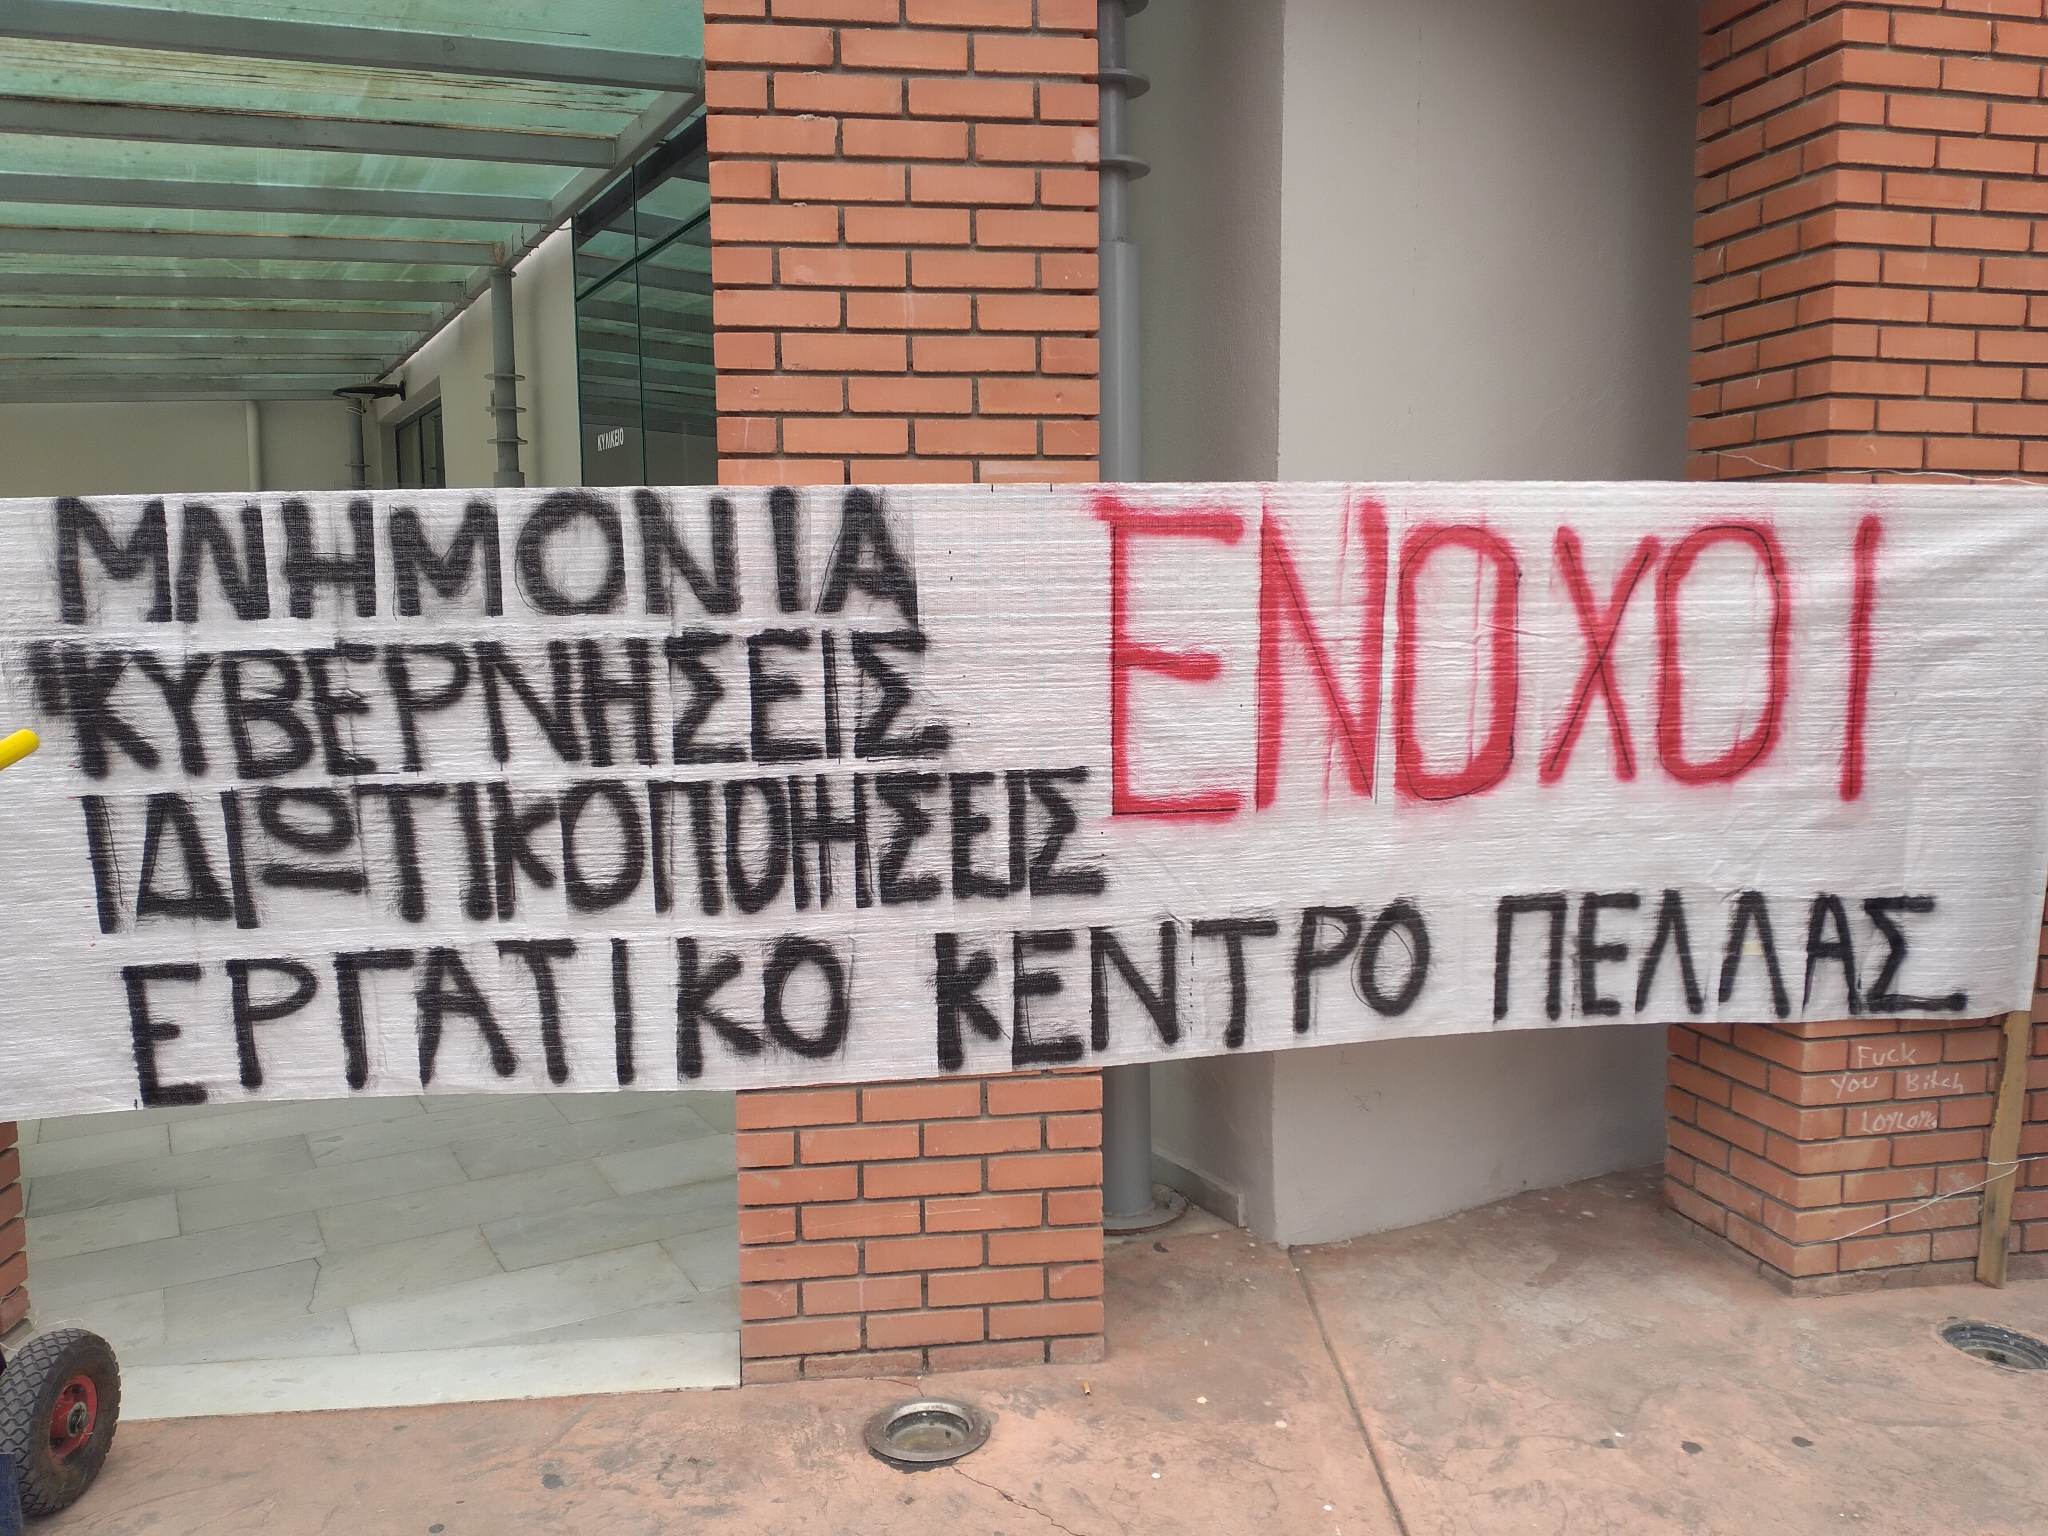 ΚΥΛΙΚΕΙΟ
ΜΝΗΜΟΝΙΑ
ΚΥΒΕΡΝΗΣΕΙΣ
ΙΔΙΩΤΙΚΟΠΟΙΗΣΕΙΣ
ΕΝΟΧΟΙ
ΕΡΓΑΤΙΚΟ ΚΕΝΤΡΟ ΠΕΛΛΑΣ
Fuck
You Bitch